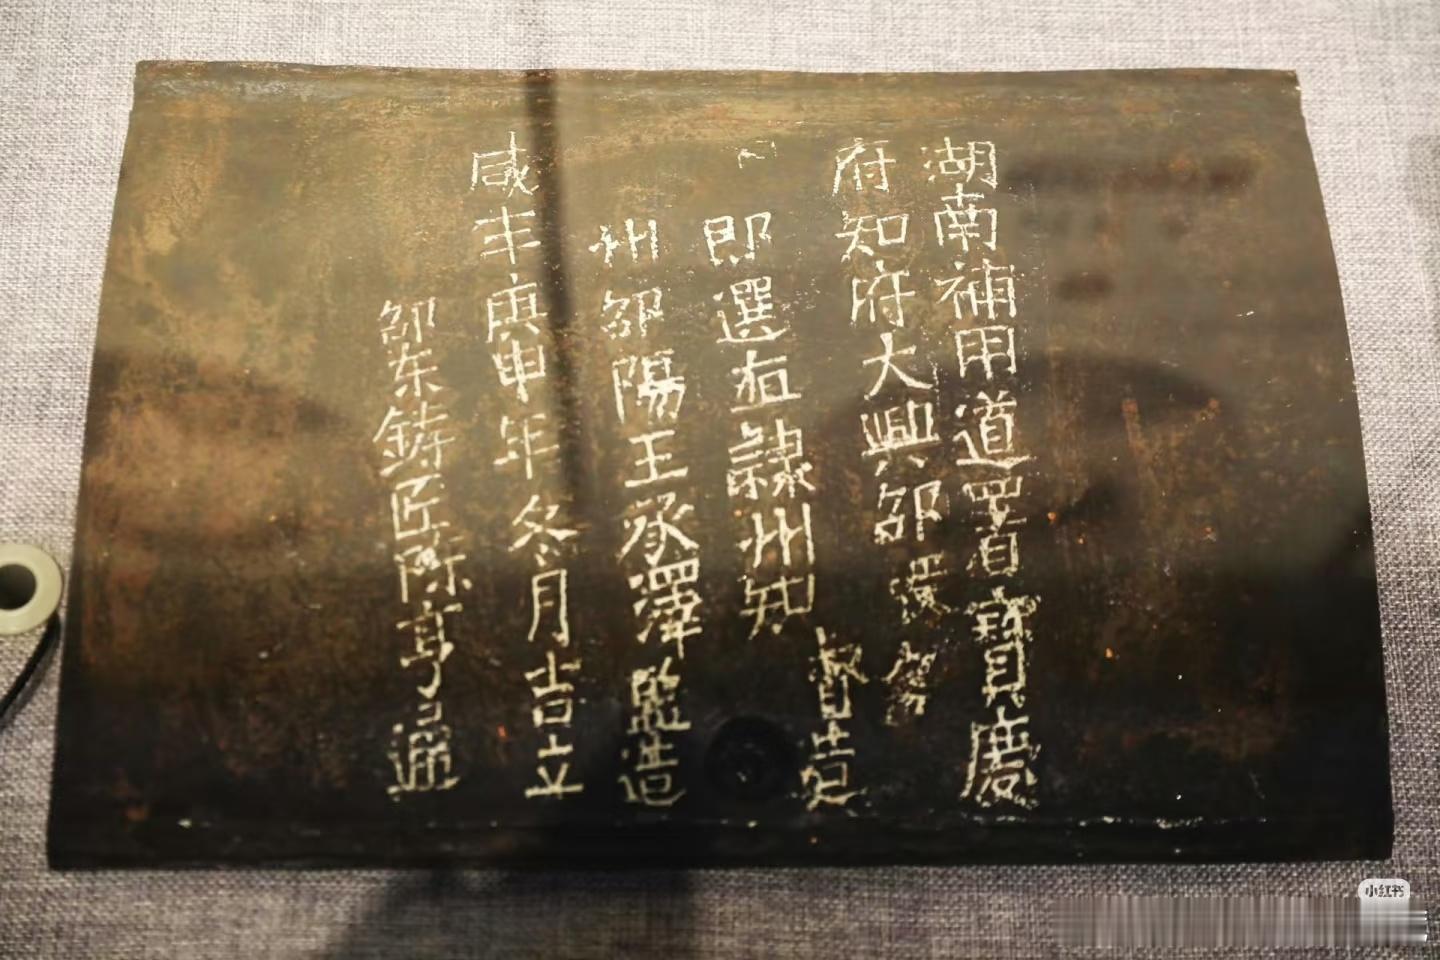 湖南補用道署寶慶
府知府大興邵綬名
督造
即選直隸州知
州邵陽王承澤監造
咸丰庚申年冬月吉立
邵东鋳匠陈亨通
小红书